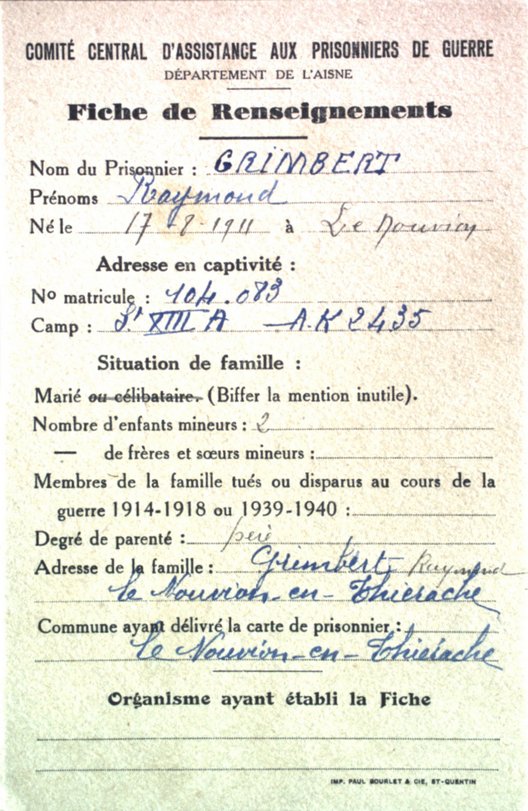 COMITÉ CENTRAL D'ASSISTANCE AUX PRISONNIERS DE GUERRE
DÉPARTEMENT DE L'AISNE
Fiche de Renseignements
Nom du Prisonnier : GRIMBERT
Prénoms Raymond
Né le 17 - 8 - 1911 à Le Nouvion
Adresse en captivité :
No matricule : 104.083
Camp : St XIII A - A.K 2435
Situation de famille :
Marié ou célibataire. (Biffer la mention inutile).
Nombre d'enfants mineurs : 2
— de frères et sœurs mineurs :
Membres de la famille tués ou disparus au cours de la
guerre 1914-1918 ou 1939-1940 :
Degré de parenté : père
Adresse de la famille : Grimbert Raymond
le Nouvion-en-Thiérache
Commune ayant délivré la carte de prisonnier :
le Nouvion-en-Thiérache
Organisme ayant établi la Fiche
IMP. PAUL BOURLET & CIE, ST-QUENTIN